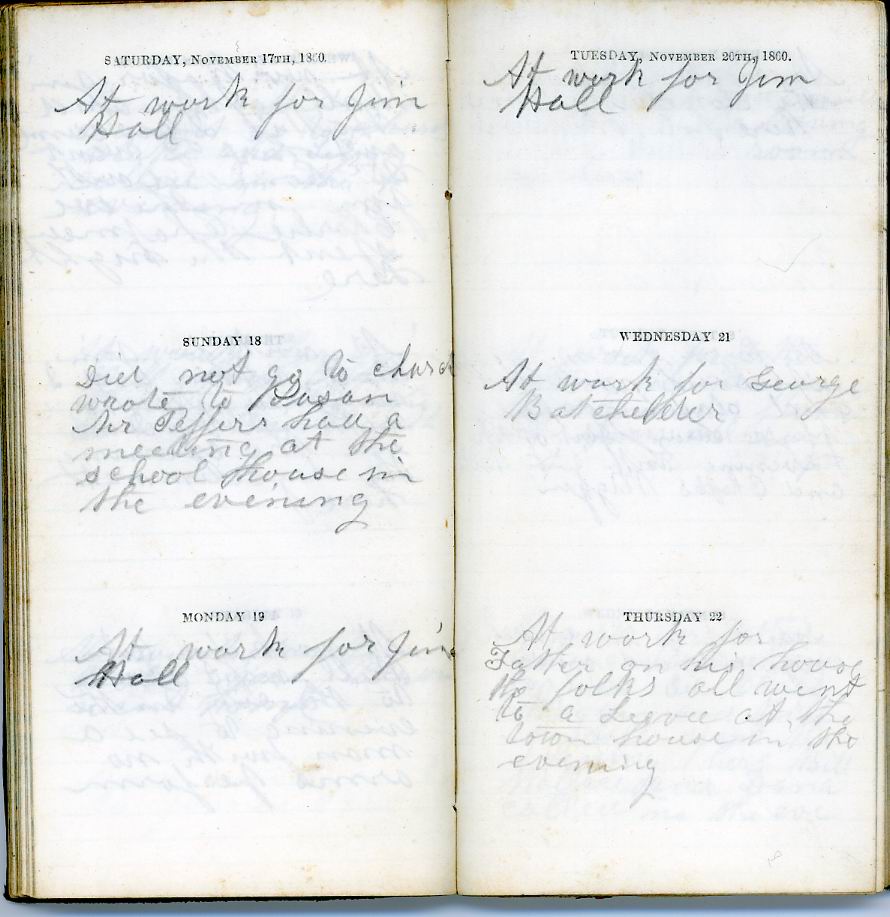 SATURDAY, NOVEMBER 17TH, 1860.
At work for Jim
Hall
SUNDAY 18
Did not go to church
wrote to Susan
Mr Jeffers had a
meeting at the
school house in
the evening
MONDAY 19
At work for Jim
Hall
TUESDAY, NOVEMBER 20TH, 1860.
At work for Jim
Hall
WEDNESDAY 21
At work for George
Batchelder
THURSDAY 22
At work for
Father on his house
the folks all went
to a Levee at the
town house in the
evening